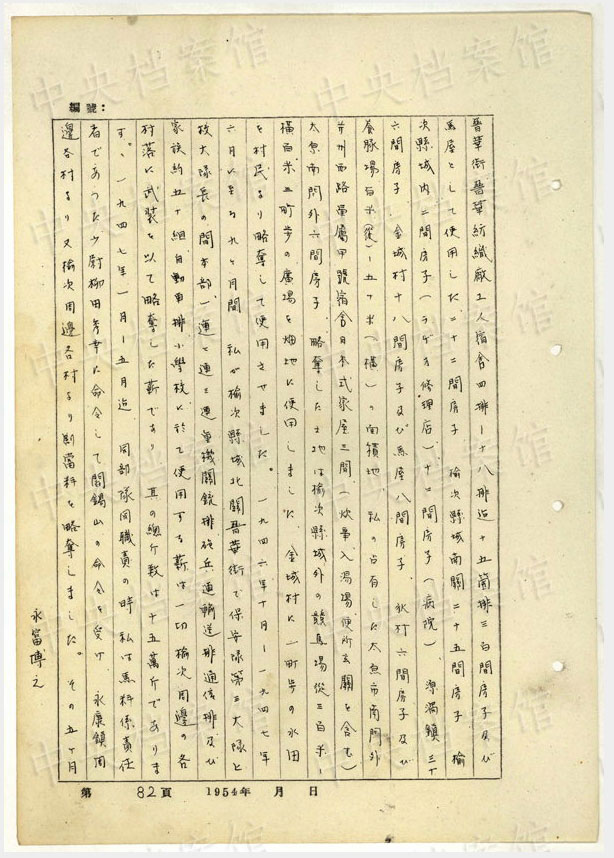 編號：
晋華街晋華紡織廠工人宿舎四排ー十八排迄十五箇排三百間房子及び
馬屋として使用した二十二間房子 榆次縣城南關二十五間房子 榆
次縣城内二間房子(ラヂオ修理店)十二間房子(病院) 源渦鎮三十
六間房子 金城村十八間房子及び馬屋八間房子、秋村六間房子及び
屠豚場百米(縱)ー五十米(橫)の面積地 私の占有した太原市南門外
并州西路 甲號宿舎日本式家屋三間(炊事入湯場便所玄關を含む)
太原南門外六間房子 略奪した土地は榆次縣城外の競馬場從三百米ー
橫百米三町步の廣場を畑地に使用しました、金城村に一町步の水田
を村民より略奪して使用させました。一九四六年十月ー一九四七年
六月に至る九ヶ月間 私が榆次縣城北關晋華街で保安隊第三大隊と
大隊長の間本部一連と二連三連重機關銃排砲兵連輸送排通信排及び
家族約五十組自動車排小學校に於て使用する薪は一切榆次周邊の各
村落に武裝を以て略奪した薪であり 其の總斤数は十五萬斤でありま
す、一九四七年一月ー五月迄 同部隊同職責の時 私は馬料係責任
者であつた少尉柳田 幸に命令して閻錫山の命令を受け 永康鎮周
邊各村より又榆次周邊各村より割當料を略奪しました。その五ヶ月
永富博之
第 82頁 1954年 月 日